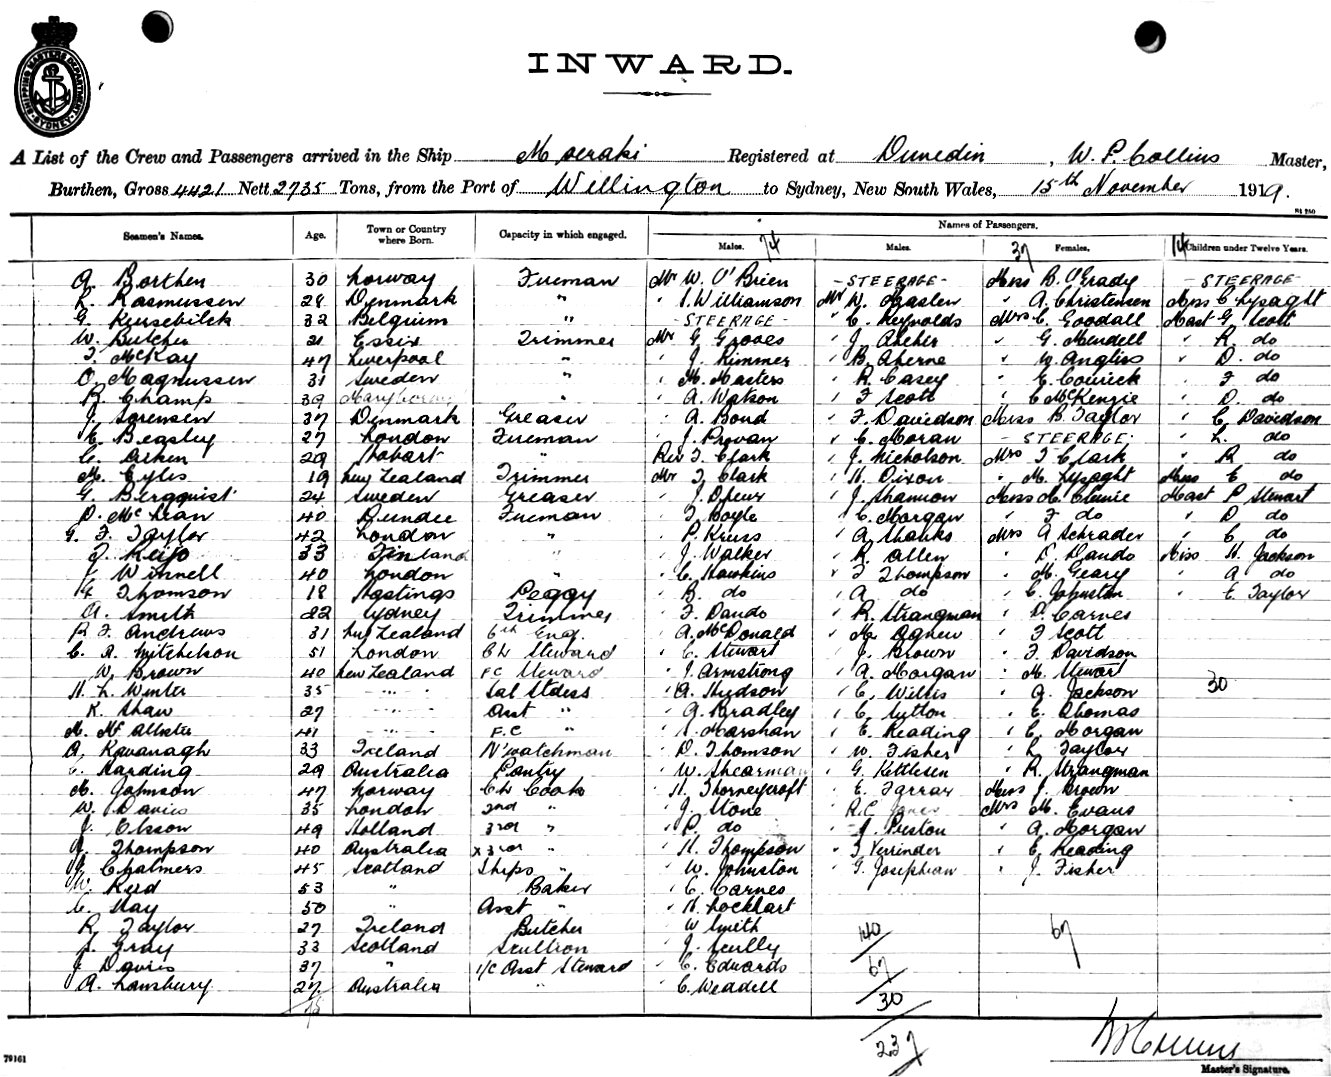 SHIPPING MASTERS DEPARTMENT SYDNEY
INWARD.
A List of the Crew and Passengers arrived in the Ship Moeraki Registered at Dunedin, W. P. Collins Master,
Burthen, Gross 4421 Nett 2735 Tons, from the Port of Wellington to Sydney, New South Wales, 15th November 1919.
Names of Passengers.
Seamen's Names. Age. Town or Country where Born. Capacity in which engaged. Males. 74 Males. 37 Females. 14 Children under Twelve Years.
A. Borthen 30 Norway Fireman Mr W. O'Brien -STEERAGE- Miss B. O'Grady -STEERAGE-
L. Rasmussen 28 Denmark " " Williamson Mr W. Haslen " A. Christensen Miss C Lysaght
G. 32 Belgium " -STEERAGE- " C. Reynolds Mrs C. Goodall Mast G. Scott
W. Butcher 21 Essex Trimmer Mr G. Groves " J. Archer " G. Mendell " R. do
T. McKay 47 Liverpool " " J. Rimmer " B. Aherne " Angliss " D. do
O. Magnussen 31 Sweden " " M. Masters " R. Casey " E. " J do
R. Champ 39 " " A. Watson " F Scott " E McKenzie " D. do
J. Sorensen 37 Denmark Greaser " A. Bond " F. Davidson Miss B. Taylor " C. Davidson
C. Beasley 27 London Fireman " J. Provan " C. Moran -STEERAGE- " L. do
C. Aitken 29 Hobart " Rev J. Clark " J. Nicholson Mrs J Clark " R do
M. Eyles 19 New Zealand Trimmer Mr J. Clark " H. Dixon " M. Lysaght Miss E do
G. Bergquist 24 Sweden Greaser " J. " J. Shannon Miss M. Mast P. Stewart
D. McLean 40 Dundee Fireman " J. Boyle " C. Morgan " F do " D. do
G. F. Taylor 42 London " " P. Kruss " A. Shanks Mrs A Schrader " C do
J. Keijo 33 Finland " " J. Walker " R. Allen " D. Dando Miss H. Jackson
J. Winnell 40 London " " C. Hawkins " F Thompson " M. Geary " A. do
G. Thomson 18 Hastings Peggy " B. do " A do " C. Johnston " E. Taylor
A. Smith 22 Sydney Trimmer " F. Dando " R. Strangman " D. Carnes
R. F. Andrews 31 New Zealand 6th Eng. " A. McDonald " M. Agnew " F Scott
C. A. Mitchelson 51 London Ch Steward " C. Stewart " C. Brown " F. Davidson
W. Brown 40 New Zealand F.C Steward " J. Armstrong " A. Morgan " M. Stewart
H. L. Winter 35 " " Sal Stdess " A. Hudson " C. Willis " A. Jackson 30
K. Shaw 27 " " Asst " " A. Bradley " C. Sutton " E. Thomas
M. McAllister 41 " " F.C " " Marshan " E. Reading " E. Morgan
A. Kavanagh 33 Ireland N'watchman " D. Thomson " W. Fisher " L. Taylor
C. Harding 29 Australia Pantry " W. Shearman " G. Kettlesen " R. Strangman
M. Johnson 47 Norway Ch Cook " H. Thorneycroft " E. Farrar Miss J. Brown
W. Davies 35 London 2nd " " J. Stone R.C. Jones Mrs M. Evans
J. Olsson 49 Holland 3rd " " P. do " J. Preston " A. Morgan
J. Thompson 40 Australia x3rd " " H. Thompson " J Verrinder " E. Reading
J. Chalmers 45 Scotland Ships " " W. Johnston " G. Josephian " J. Fisher
W. Reid 53 " Baker " C. Carnes
C. May 50 Asst " " H. Lockhart
R. Taylor 27 Ireland Butcher " W Smith 140 67
J. Gray 33 Scotland Scullion " J. Scully
J. Davies 37 " 1/C Asst Steward " C. Edwards 67
A. Lansbury 27 Australia " " C. Weddell 30
237
Master's Signature.
79161